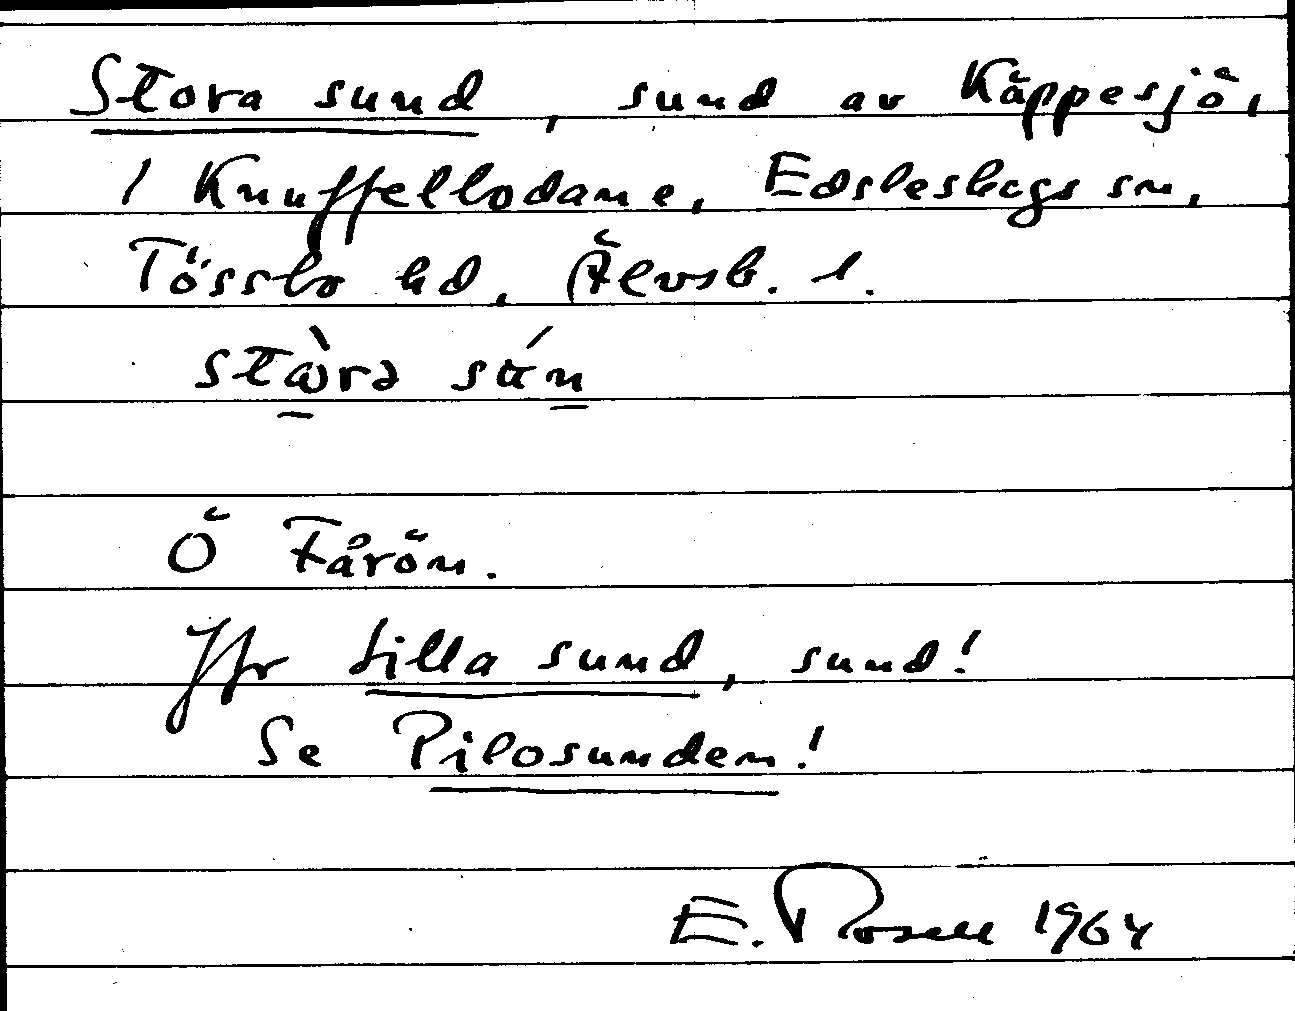 Stora sund, sund av Käppesjö,
i Knuffelbodarne, Edsleskogs sn,
Tössbo hd, Älvsb. l.
stɷ̀rə sún
Ö Fårön.
Jfr Lilla sund, sund!
Se Pilosunden!
E. Rosell 1964